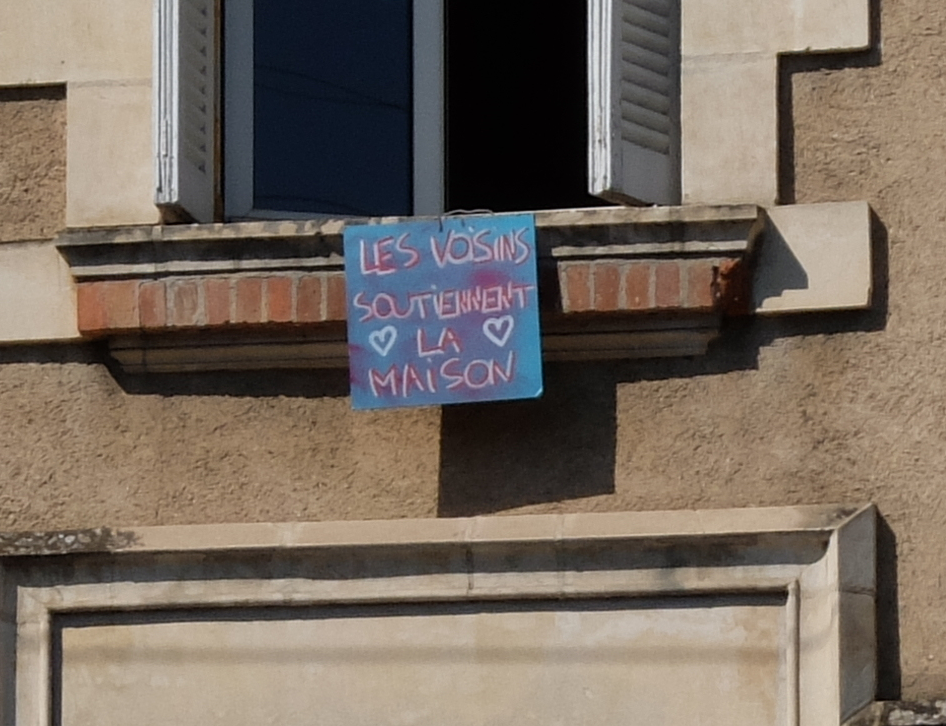 LES VOiSiNS
SOUTiENNENT
LA
MAiSON